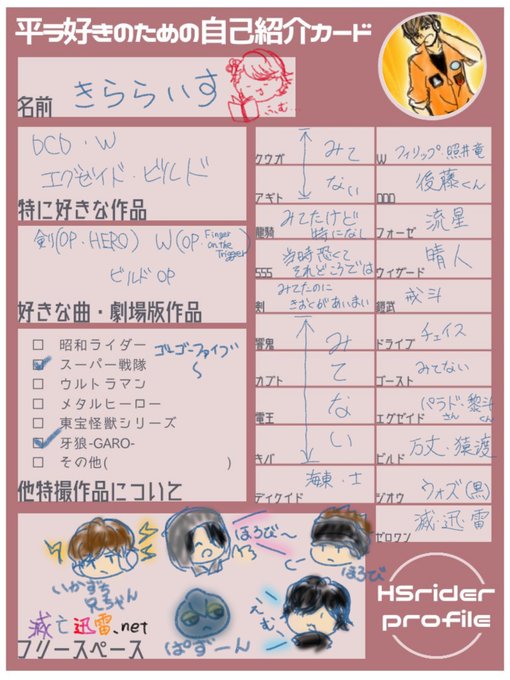 平ラ好きのための自己紹介カード
名前
きららいす
DCD・W
エグゼイド・ビルド
特に好きな作品
剣(OP・HERO) W(OP・Finger on the Trigger)
ビルドOP
好きな曲・劇場版作品
昭和ライダー
スーパー戦隊
ゴーゴーファイブ
ウルトラマン
メタルヒーロー
東宝怪獣シリーズ
牙狼-GARO-
その他( )
他特撮作品について
クウガ
みて
アギト
ない
龍騎
みてたけど
特になし
555
当時恐くて
それどころでは
剣
みてたのに
きおくがあいまい
響鬼
み
カブト
て
電王
な
キバ
い
ディケイド
海東・士
W
フィリップ・照井竜
OOO
後藤くん
フォーゼ
流星
ウィザード
晴人
鎧武
戒斗
ドライブ
チェイス
ゴースト
みてない
エグゼイド
パラド・黎斗
さん くん
ビルド
万丈・猿渡
ジオウ
ウォズ(黒)
ゼロワン
滅迅雷
いかずち
兄ちゃん
ほろび〜
ほろび
滅亡迅雷.net
ぱずーん
えむ〜
フリースペース
HSrider
profile